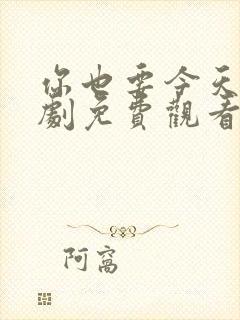 你也要今天
劇免費觀看
阿窩